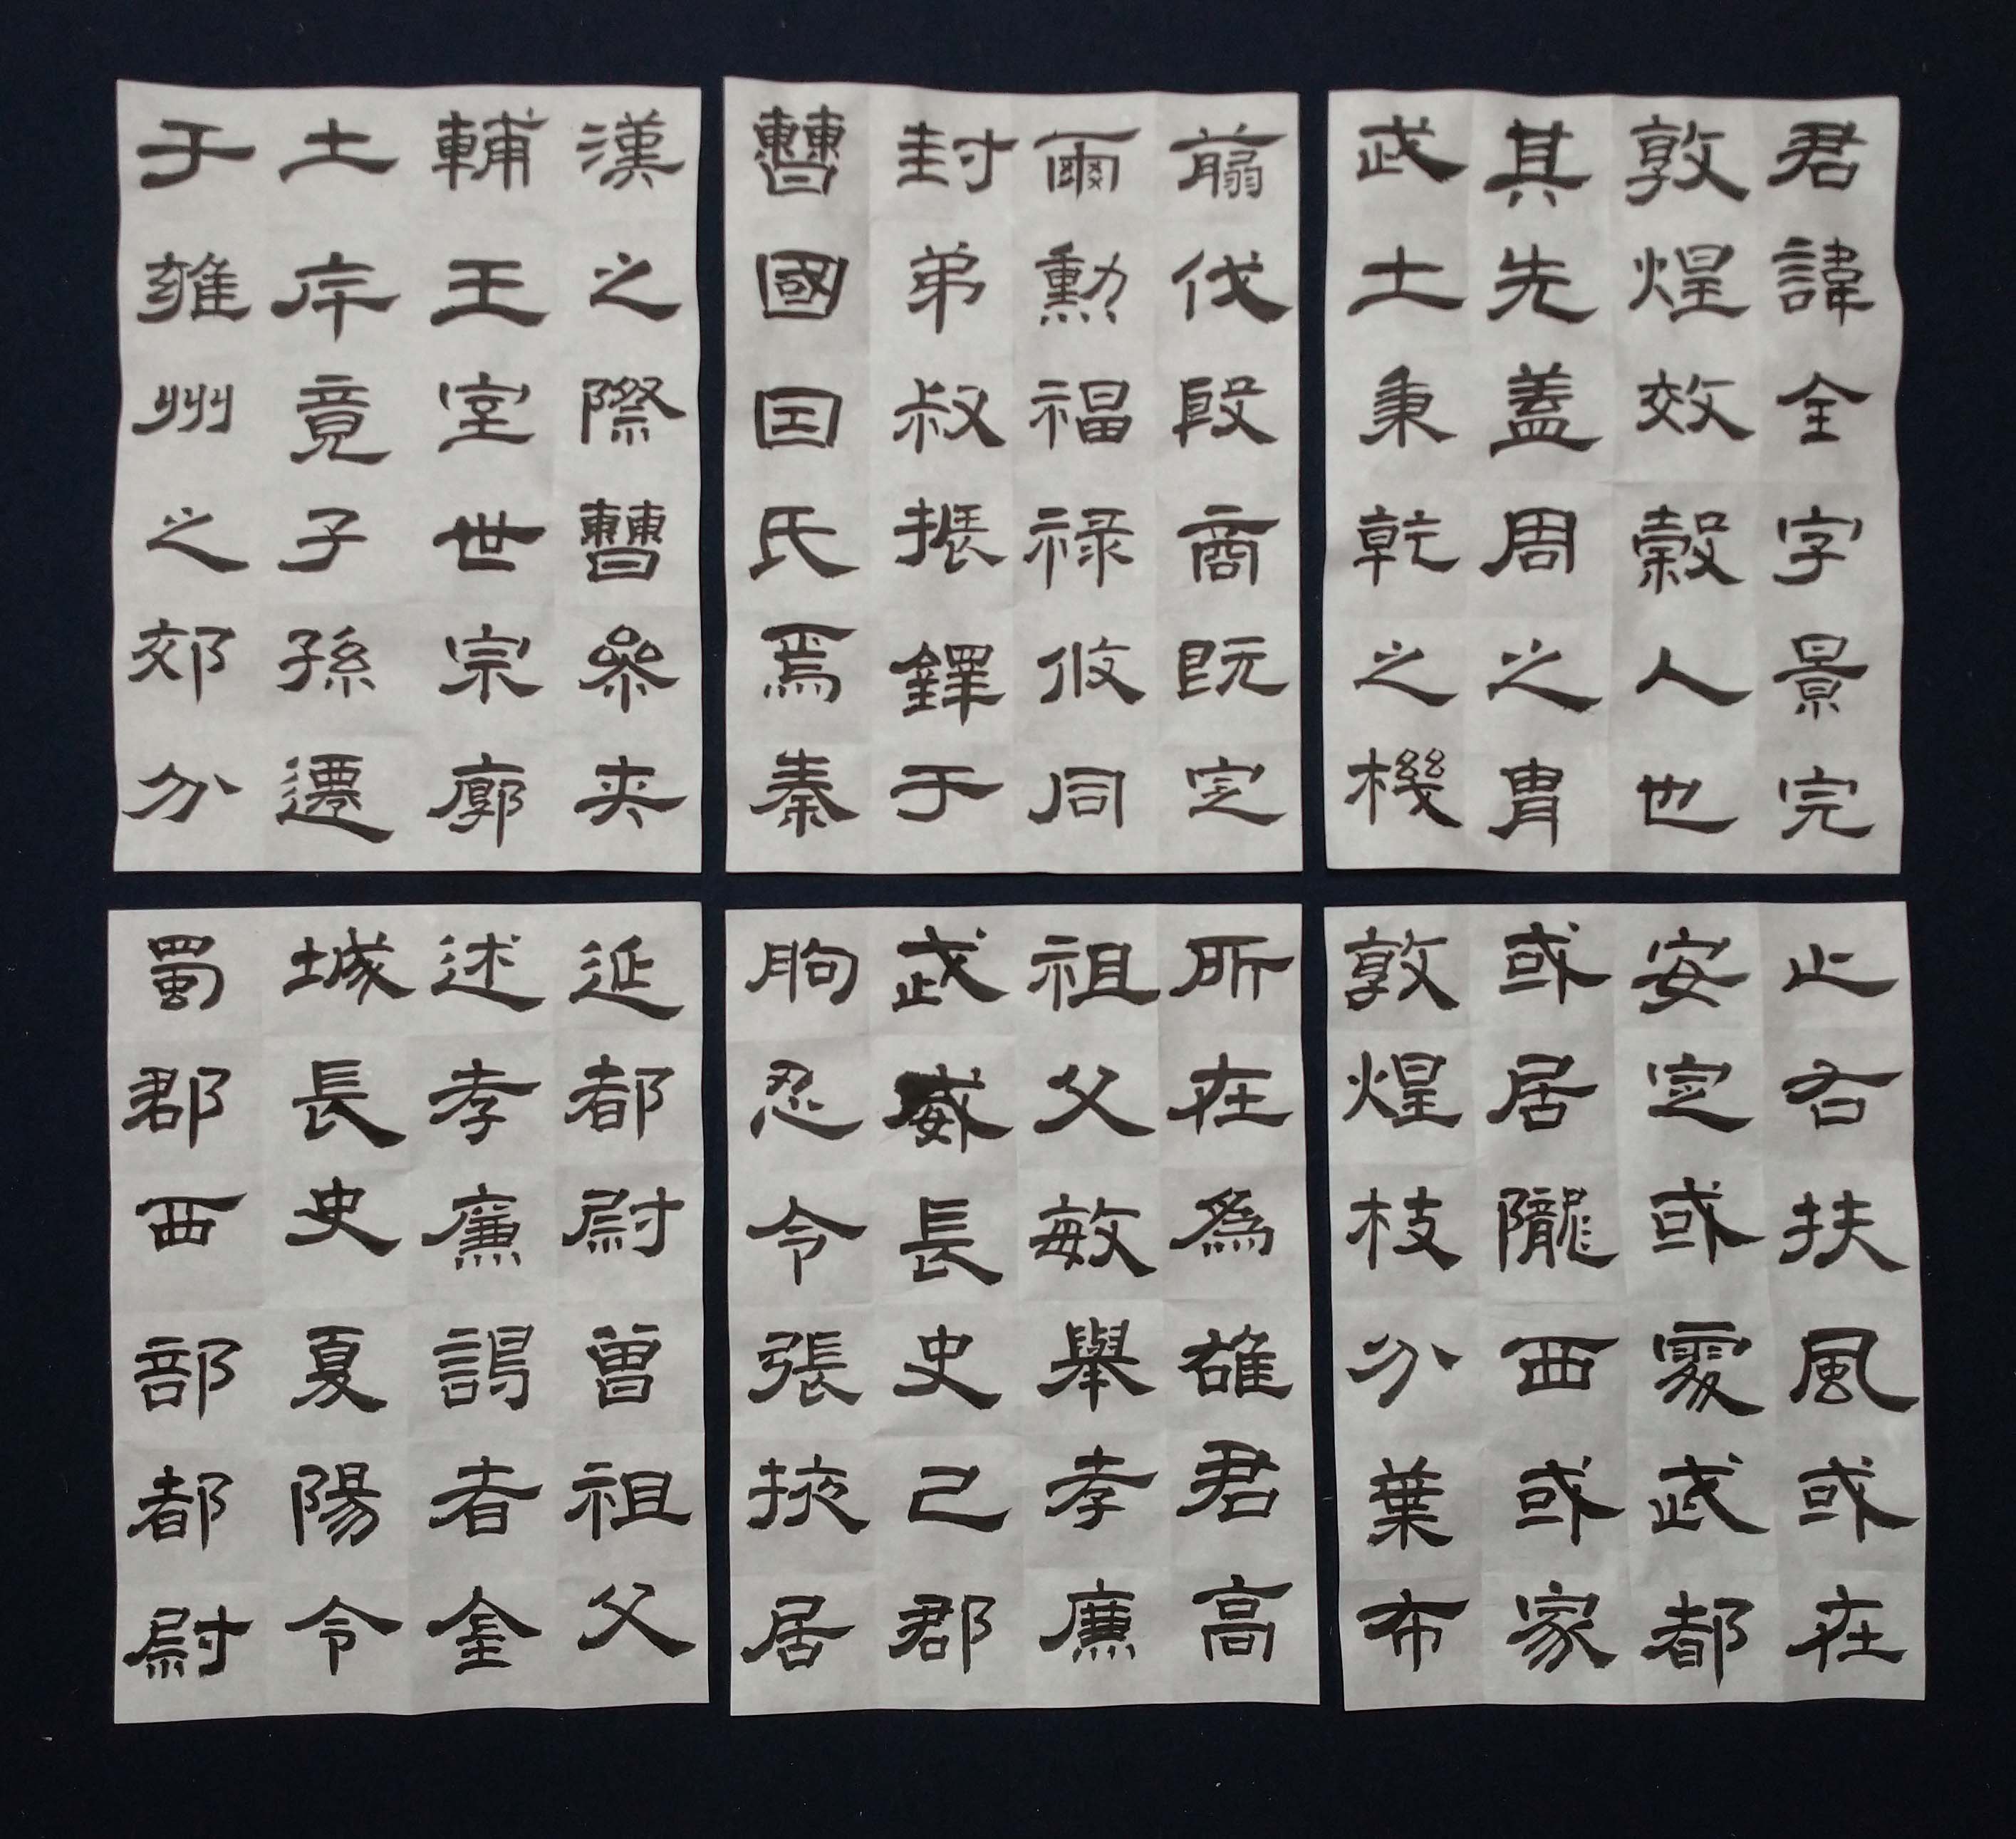 君諱全字景完
敦煌效穀人也
其先蓋周之胄
武土秉乾之機
翦伐殷商既定
爾勳福祿攸同
封弟叔振鐸于
曹國因氏焉秦
漢之際曹參夾
輔王室世宗廓
土斥竟子孫遷
于雍州之郊分
止右扶風或在
安定或處武都
或居隴西或家
敦煌枝分葉布
所在為雄君高
祖父敏舉孝廉
武威長史巳郡
朐忍令張掖居
延都尉曾祖父
述孝廉謁者金
城長史夏陽令
蜀郡西部都尉